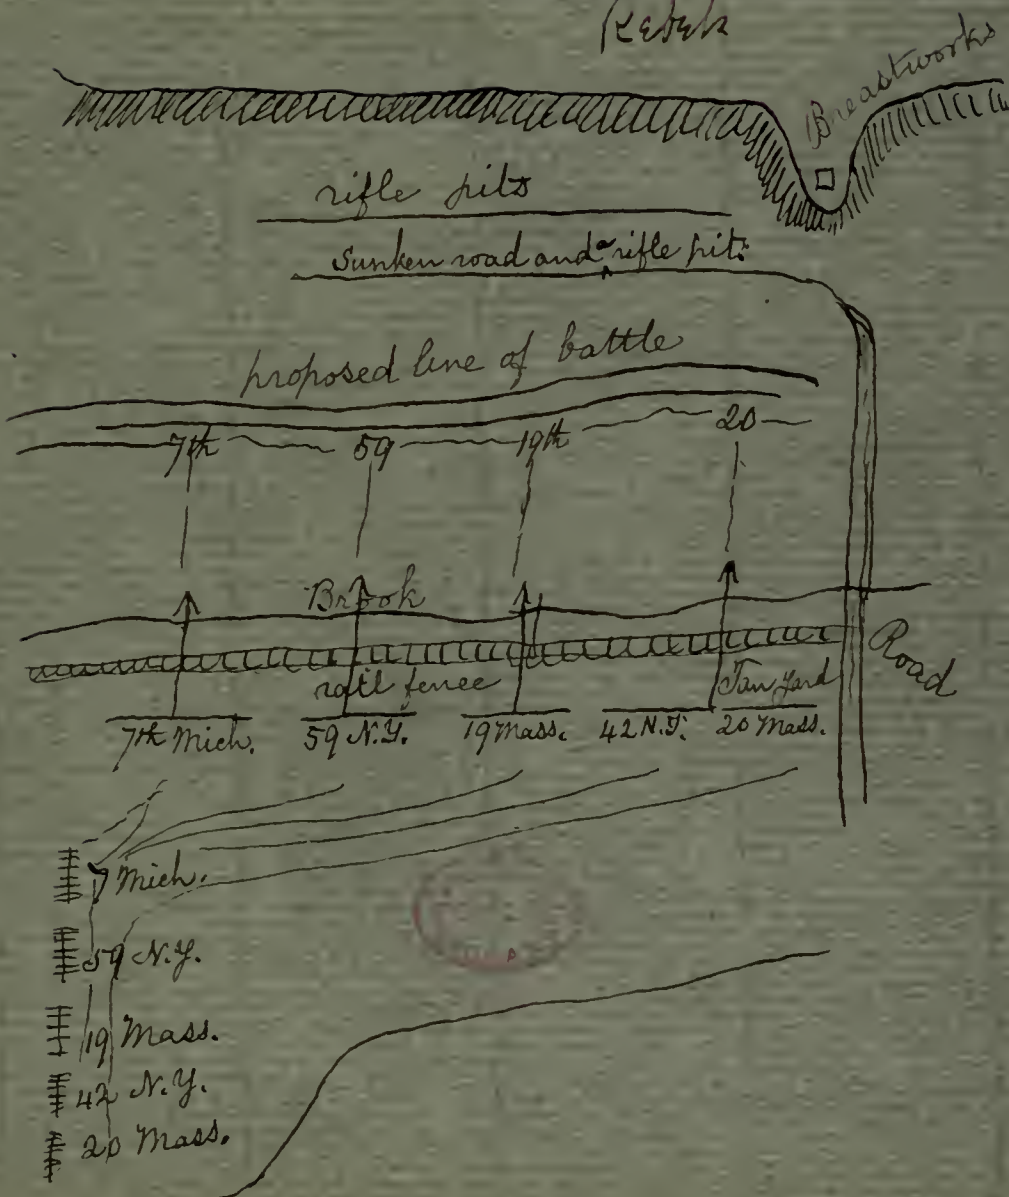 Rebels
Breastworks
rifle pits
Sunken road and a rifle pit.
proposed line of battle
7th 59 19th 20
Brook
Road
rail fence
Tan Yard
7th Mich. 59 N.Y. 19 Mass. 42 N.Y. 20 Mass.
7 Mich.
59 N.Y.
19 Mass.
42 N.Y.
20 Mass.